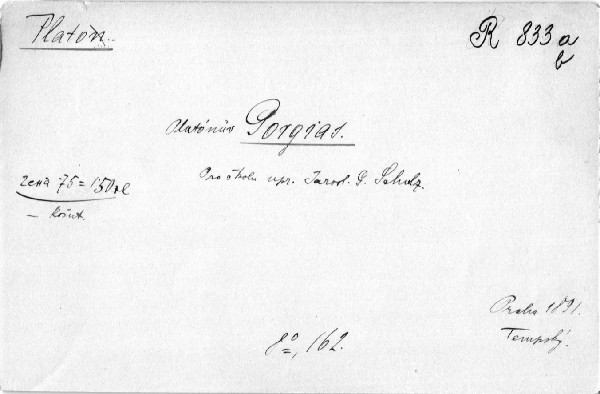 Platón.
R 833 a
b
Platónův Gorgias.
Pro školu upr. Jarosl. G. Schulz.
cena 75 =
Praha 1891.
Tempský.
8°, 162.